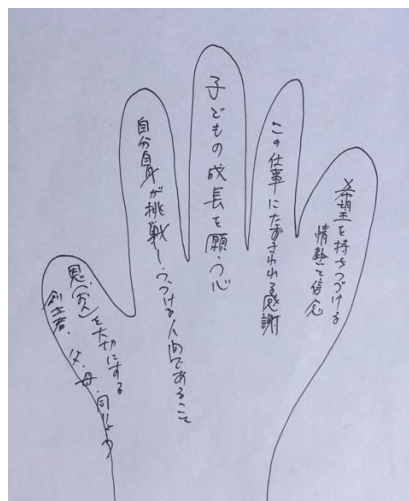 希望を持ちつづける
情熱と信念
この仕事にたずさわれる感謝
子どもの成長を願う心
自分自身が挑戦しつづける人間であること
恩(おん)を大切にする
創立者、父・母・同りょう